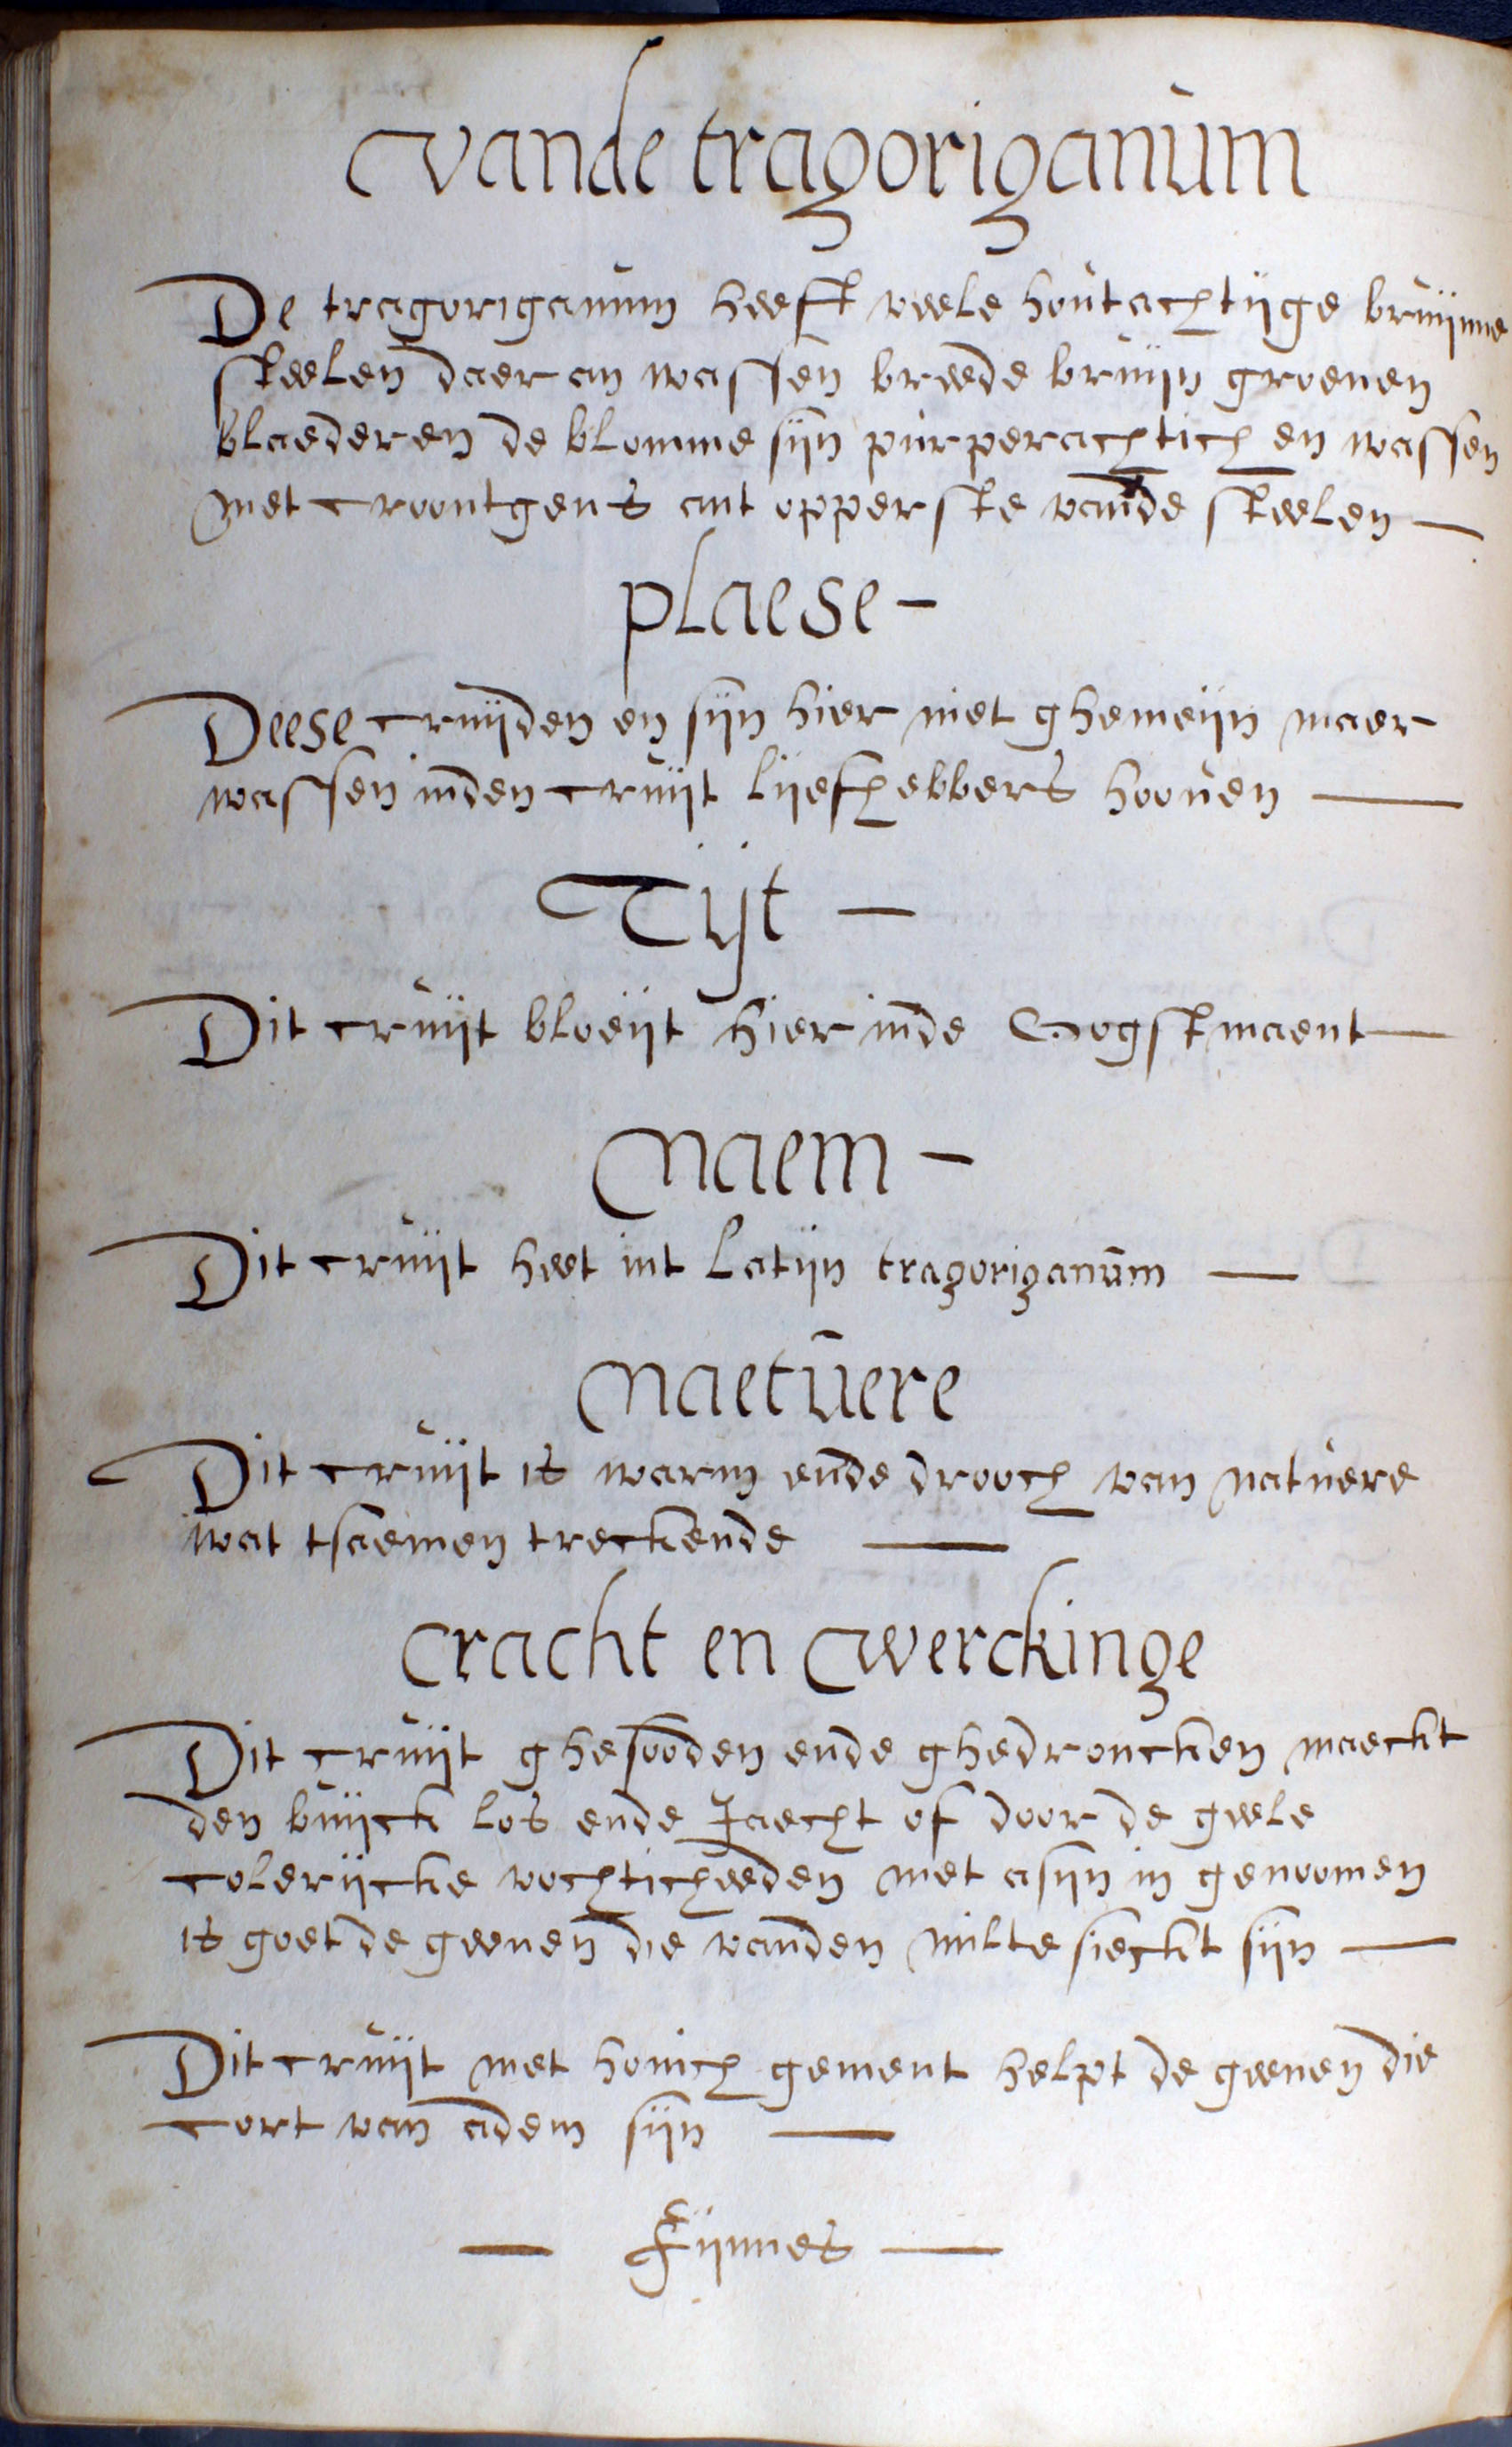 vande tragoriganum
De tragoriganum heeft veele houtachtijge bruijnne
steelen daer an wassen breede bruijn groenen
blaederen de blomme sijn purperachtich en wassen
met croontgens ant opperste vande steelen —
plaese —
Deese cruijden en sijn hier niet ghemeijn maer
wassen inden cruijt lijefhebbers hooven —
Tijt —
Dit cruijt bloeijt hier inde Oogstmaent —
naem —
Dit cruijt heet int Latijn tragoriganum —
naetuere
Dit cruijt is warm ende drooch van natuere
wat tsaemen treckende —
cracht en werckinge
Dit cruijt ghesooden ende ghedroncken maeckt
den buijck los ende Jaecht of door de geele
colerijcke vochticheeden met asijn in genoomen
is goet de geenen die vanden milte sieckt sijn —
Dit cruijt met honich gement helpt de geenen die
cort van adem sijn —
— Fijnnes —